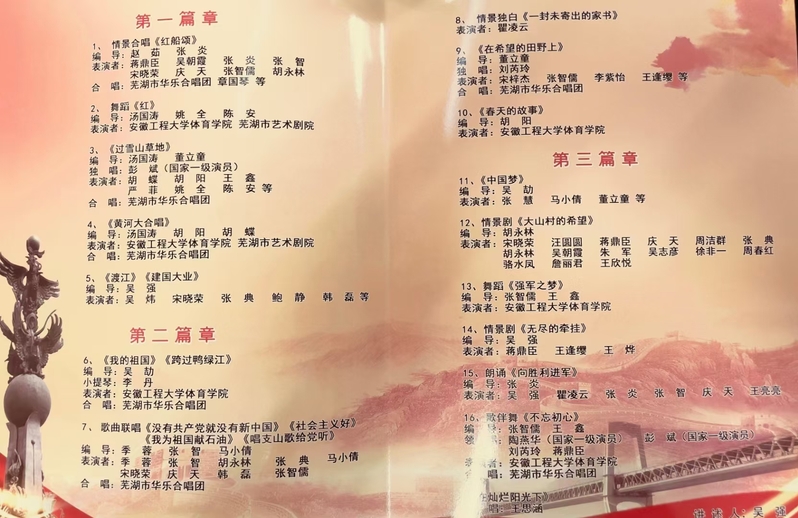 第一篇章
1、情景合唱《红船颂》
编　导：赵　茹　张　炎
表演者：蒋鼎臣　吴朝霞　张　炎　张　智
宋晓荣　庆　天　张智儒　胡永林
合　唱：芜湖市华乐合唱团 章国琴 等
2、舞蹈《红》
编　导：汤国涛　姚　全　陈　安
表演者：安徽工程大学体育学院　芜湖市艺术剧院
3、《过雪山草地》
编　导：汤国涛　董立童
独　唱：彭　斌（国家一级演员）
表演者：胡　蝶　胡　阳　王　鑫
严　菲　姚　全　陈　安 等
合　唱：芜湖市华乐合唱团
4、《黄河大合唱》
编　导：汤国涛　胡　阳　胡　蝶
表演者：安徽工程大学体育学院　芜湖市艺术剧院
合　唱：芜湖市华乐合唱团
5、《渡江》《建国大业》
编　导：吴　强
表演者：吴　炜　宋晓荣　张　典　鲍　静　韩　磊 等
第二篇章
6、《我的祖国》《跨过鸭绿江》
编　导：吴　劼
小提琴：李　丹
表演者：安徽工程大学体育学院
合　唱：芜湖市华乐合唱团
7、歌曲联唱《没有共产党就没有新中国》《社会主义好》
《我为祖国献石油》《唱支山歌给党听》
编　导：季　蓉　张　智　马小倩
表演者：季　蓉　张　智　胡永林　张　典　马小倩
宋晓荣　庆　天　韩　磊　张智儒
合　唱：芜湖市华乐合唱团
8、情景独白《一封未寄出的家书》
表演者：瞿凌云
9、《在希望的田野上》
编　导：董立童
独　唱：刘芮玲
表演者：宋梓杰　张智儒　李紫怡　王逢缨 等
合　唱：芜湖市华乐合唱团
10、《春天的故事》
编　导：胡　阳
表演者：安徽工程大学体育学院
第三篇章
11、《中国梦》
编　导：吴　劼
表演者：张　慧　马小倩　董立童 等
12、情景剧《大山村的希望》
编　导：胡永林
表演者：宋晓荣　汪圆圆　蒋鼎臣　庆　天　周洁群　张　典
胡永林　吴朝霞　朱　军　吴志彦　徐非一　周春红
骆水凤　詹丽君　王欣悦
13、舞蹈《强军之梦》
编　导：张智儒　王　鑫
表演者：安徽工程大学体育学院
14、情景剧《无尽的牵挂》
编　导：吴　强
表演者：蒋鼎臣　王逢缨　王　烨
15、朗诵《向胜利进军》
编　导：张　炎
表演者：吴　强　瞿凌云　张　炎　张　智　庆　天　王亮亮
16、歌伴舞《不忘初心》
编　导：张智儒　王　鑫
领　唱：陶燕华（国家一级演员）　彭　斌（国家一级演员）
刘芮玲　蒋鼎臣
表演者：安徽工程大学体育学院
合　唱：芜湖市华乐合唱团
在灿烂阳光下》
唱：王思涵
讲述人：吴　强